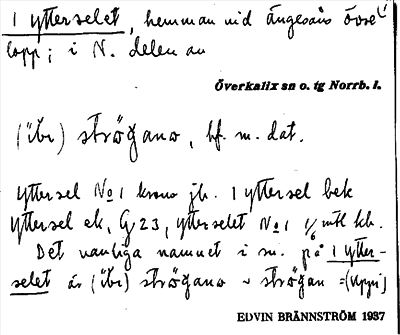 1 ytterselet, hemman vid ängesåns övre
lopp; i N. delen av
Överkalix sn o. tg Norrb. l.
(ibr) strögano, bf. m. dat.
yttersel No 1 krono jb. 1 yttersel bek
yttersel ek, G 23, ytterselet No 1 1/6 mtl kb.
Det vanliga namnet i sn. på 1 ytter-
selet är (ibr) strögano ~ strögan
EDVIN BRÄNNSTRÖM 1937